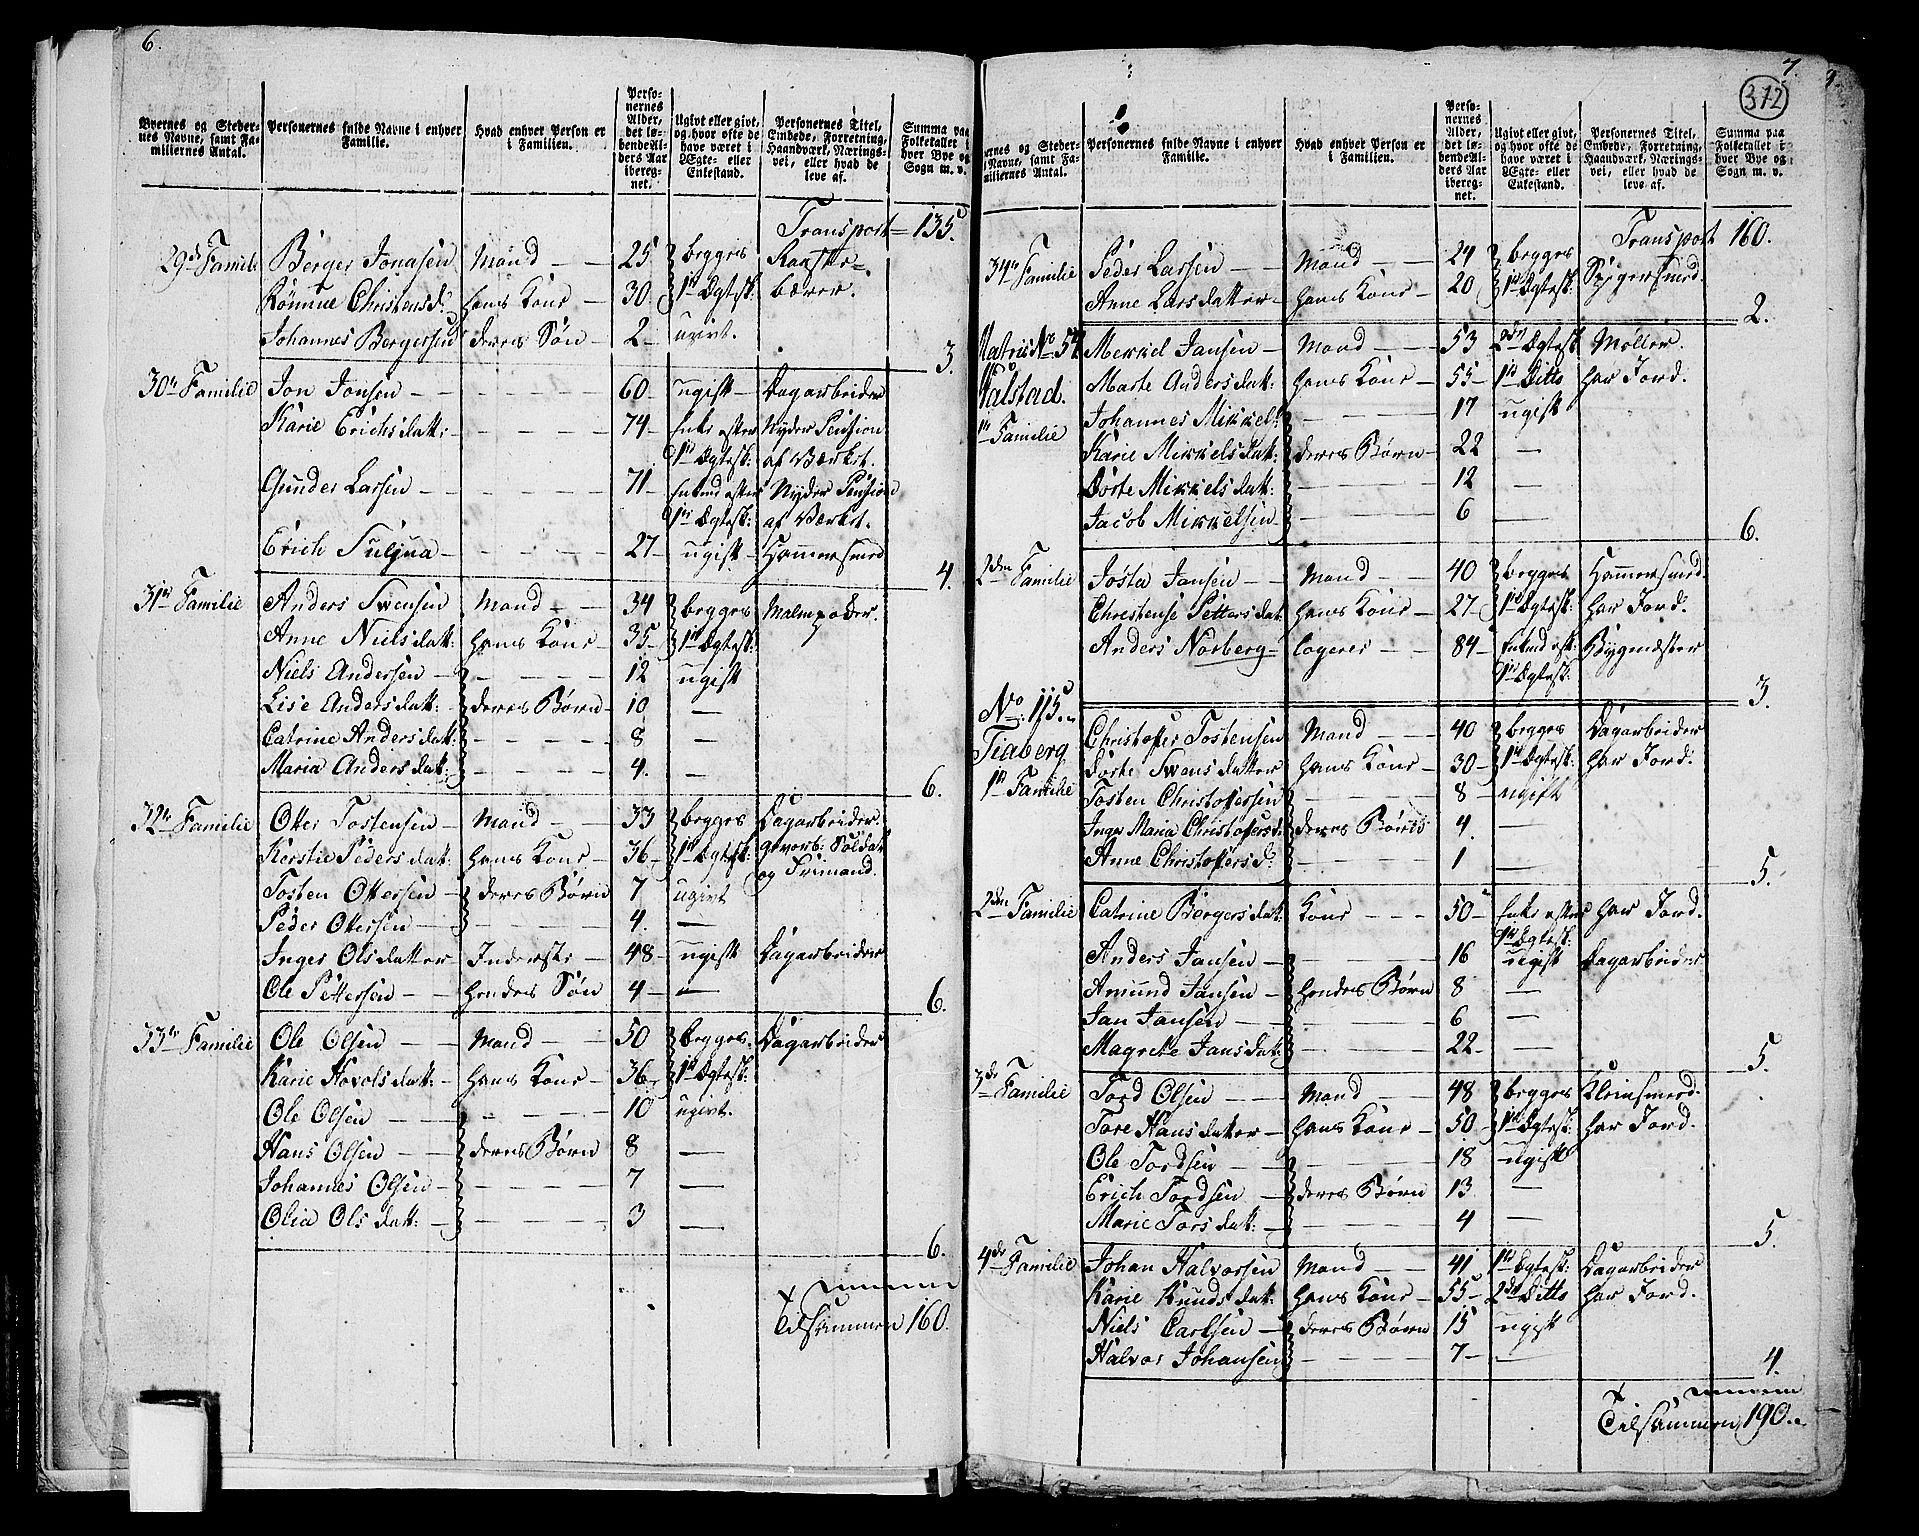 6.
Byernes og Steder-
nes Navne, samt Fa-
miliernes Antal.
Personernes fulde Navne i enhver
Familie.
Hvad enhver Person er
i Familien.
Perso-
nernes
Alder,
det lø-
bende Al-
ders Aar
ibereg-
net.
Ugivt eller givt,
og hvor ofte de
have været i
Ægte- eller
Enkestand.
Personernes Titel,
Embede, Forretning,
Haandværk, Nærings-
vei, eller hvad de
leve af.
Summa paa
Folketallet i
hver Bye og
Sogn m. v.
Transport = 135.
29de Famili Berger Jonasen Mand — 25 begges
Christensd. hans Kone — 30 1ste Ægtesk:
Johannes Bergersen deres Søn — 2 — ugivt.
3.
30te Familie Jon Jonsen — 60 — ugift — Dagarbeider
Karie Erichsdatt: — 74 — Enke efter Nyder Pension
1ste Ægtesk: af Værket.
Gunder Larsen — 71 — Enkmd efter Nyder Pension
1ste Ægtesk: af Værket.
Erich — 27 — ugift — Hammersmed
4.
31te Familie Anders Swensen Mand — 34 begges
Anne Nielsdatt: hans Kone — 35 1ste Ægtesk:
Niels Andersen — 12 ugift
Lise Andersdatt: — deres Børn — 10 —
Catrine Andersdatt: — 8 —
Maria Andersdatt: — 4. —
6.
32te Familie Otter Tostensen — Mand — 33 begges Dagarbeider.
Kerstie Pedersdatt: hans Kone — 36 — 1ste Ægtesk: gevorb: Soldat
og Frimand.
Tosten Ottersen — deres Børn 7 ugivt
Peder Ottersen — 4. —
Inger Olsdatter Inderste — 48 — ugift Dagarbeider
Ole Pettersen — hendes Søn 4 — —
6.
33te Familie Ole Olsen — Mand — 50 begges Dagarbeider
Karie — hans Kone — 36 — 1ste Ægtesk:
Ole Olsen — 10 ugivt.
Hans Olsen — deres Børn 8 —
Johannes Olsen — 7 —
Olia Olsdatt: — 3 —
6.
Tilsammen 160.
7.
372
ernes og Steder-
s Navne, samt Fa-
miliernes Antal.
Personernes fulde Navne i enhver
Familie.
Hvad enhver Person er
i Familien.
Perso-
nernes
Alder,
det lø-
bende Al-
ders Aar
ibereg-
net.
Ugivt eller givt,
og hvor ofte de
have været i
Ægte- eller
Enkestand.
Personernes Titel,
Embede, Forretning,
Haandværk, Nærings-
vei, eller hvad de
leve af.
Summa paa
Folketallet i
hver Bye og
Sogn m. v.
Transport 160.
34te Familie Peder Larsen — Mand — 24 begges
Anne Larsdatter — hans Kone — 20 1ste Ægtesk:
2.
Matric No 54 Mekkel Jansen — Mand — 53 2den Ægtesk Møller.
Marte Andersdatt: hans Kone — 55 — 1ste Ditto har Jord.
Johannes Mikkels: — 17 ugift
1te Familie
Karie Mikkelsdatt: deres Børn — 22 —
Dorte Mikkelsdatt: — 12 —
Jacob Mikkelsen — 6 —
6.
2den Familie Josta Jansen — Mand — 40 begges Hammersmed.
Christense Pettersdat hans Kone — 27 — 1ste Ægtesk: har Jord.
Anders Norberg — logerer — 84 — Enkmd eft: Bygmæster
1ste Ægtesk:
3.
No: 115.
Tiaberg
1te Familie
Christoffer Tostensen Mand — 40 begges Dagarbeider
Dorte Swensdatter hans Kone — 30 — 1ste Ægtesk: har Jord.
Tosten Christoffersen — 8 — ugift
Inger Maria Christoffersd: deres Børn 4. —
Anne Christoffersd: — 1 —
5.
2den Familie Catrine Bergersdatt: Kone — 50 — Enke efter har Jord.
1te Ægtesk:
Anders Jansen — 16 ugift Dagarbeider
Amund Jansen — hendes Børn 8 —
Jan Jansen — 6 —
Magrete Jansdatt: — 22 — —
5.
3de Familie Tord Olsen — Mand — 48 begges Kleinsmed.
Tore Hansdatter — hans Kone — 50 — 1ste Ægtesk: har Jord.
Ole Tordsen — 18 ugift
Erich Tordsen — deres Børn 13. —
Marie Torsdatt: — 4 —
5.
4de Familie Johan Halvorsen Mand — 41 1ste Ægtesk: Dagarbeider
Karie Knudsdatt: hans Kone — 55 — 2den Ditto har Jord.
Niels Carlsen — deres Børn 15 ugift
Halvor Johansen — 7 — —
4.
Tilsammen 190.